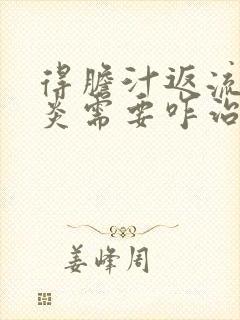 得膽汁返流
炎需要咋治
姜峰周